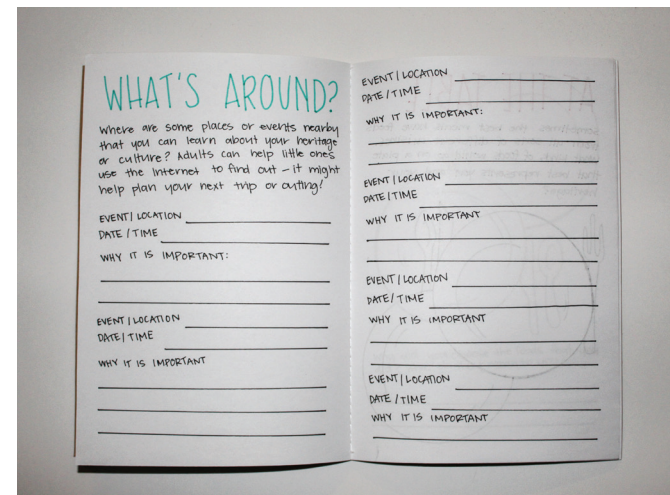 WHAT'S AROUND?
Where are some places or events nearby
that you can learn about your heritage
or culture? Adults can help little ones
use the Internet to find out – it might
help plan your next trip or outing!
EVENT/LOCATION
DATE/TIME
WHY IT IS IMPORTANT:
EVENT/LOCATION
DATE/TIME
WHY IT IS IMPORTANT
EVENT/LOCATION
DATE/TIME
WHY IT IS IMPORTANT:
EVENT/LOCATION
DATE/TIME
WHY IT IS IMPORTANT
EVENT/LOCATION
DATE/TIME
WHY IT IS IMPORTANT
EVENT/LOCATION
DATE/TIME
WHY IT IS IMPORTANT